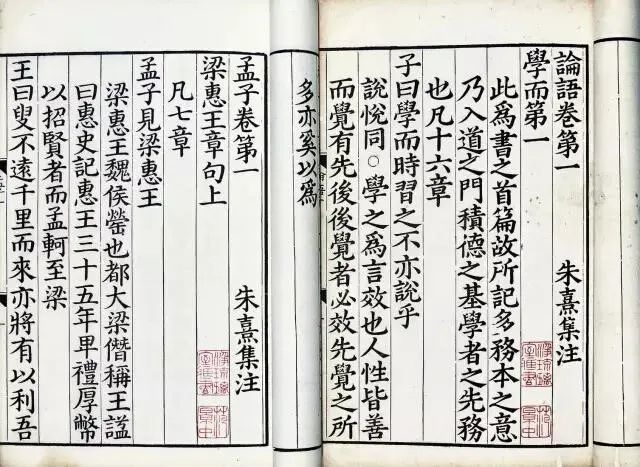 論語卷第一 朱熹集注
學而第一
此爲書之首篇故所記多務本之意
乃入道之門積德之基學者之先務
也凡十六章
子曰學而時習之不亦說乎
說悅同○學之爲言效也人性皆善
而覺有先後後覺者必效先覺之所
多亦奚以爲
孟子卷第一 朱熹集注
梁惠王章句上
凡七章
孟子見梁惠王
梁惠王魏侯罃也都大梁僭稱王謚
曰惠史記惠王三十五年卑禮厚幣
以招賢者而孟軻至梁
王曰叟不遠千里而來亦將有以利吾